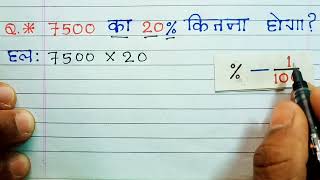 Q.* 7500 का 20% कितना होगा?
हल: 7500 × 20
% — 1/100